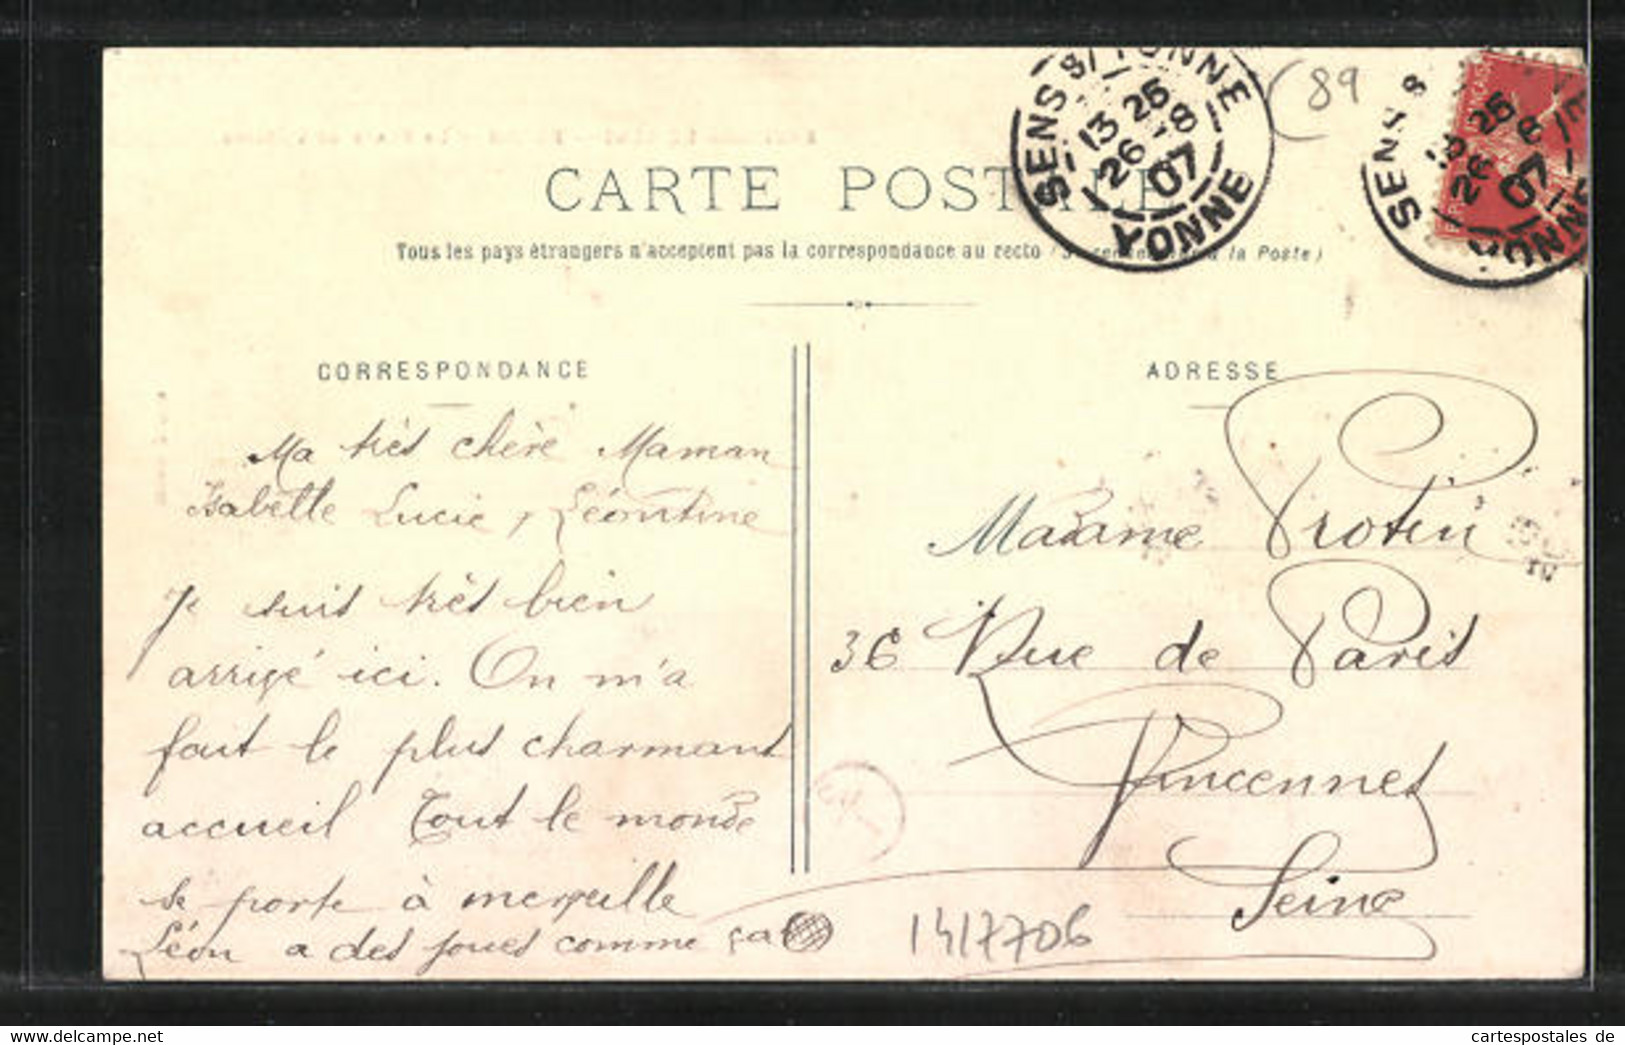 CARTE POSTALE
Tous les pays étrangers n'acceptent pas la correspondance au recto (Se renseigner à la Poste)
SENS S/ YONNE
13 25
26 -8
07
YONNE
(89
SENS S
13 25
26 8
07
YONNE
CORRESPONDANCE
Ma très chère Maman
Isabelle Lucie, Léontine
Je suis très bien
arrivé ici. On m'a
fait le plus charmant
accueil Tout le monde
se porte à merveille
Léon a des joues comme ça
ADRESSE
Madame Protin
36 Rue de Paris
Vincennes
Seine
1417706
hip-cards.com
cartespostales de